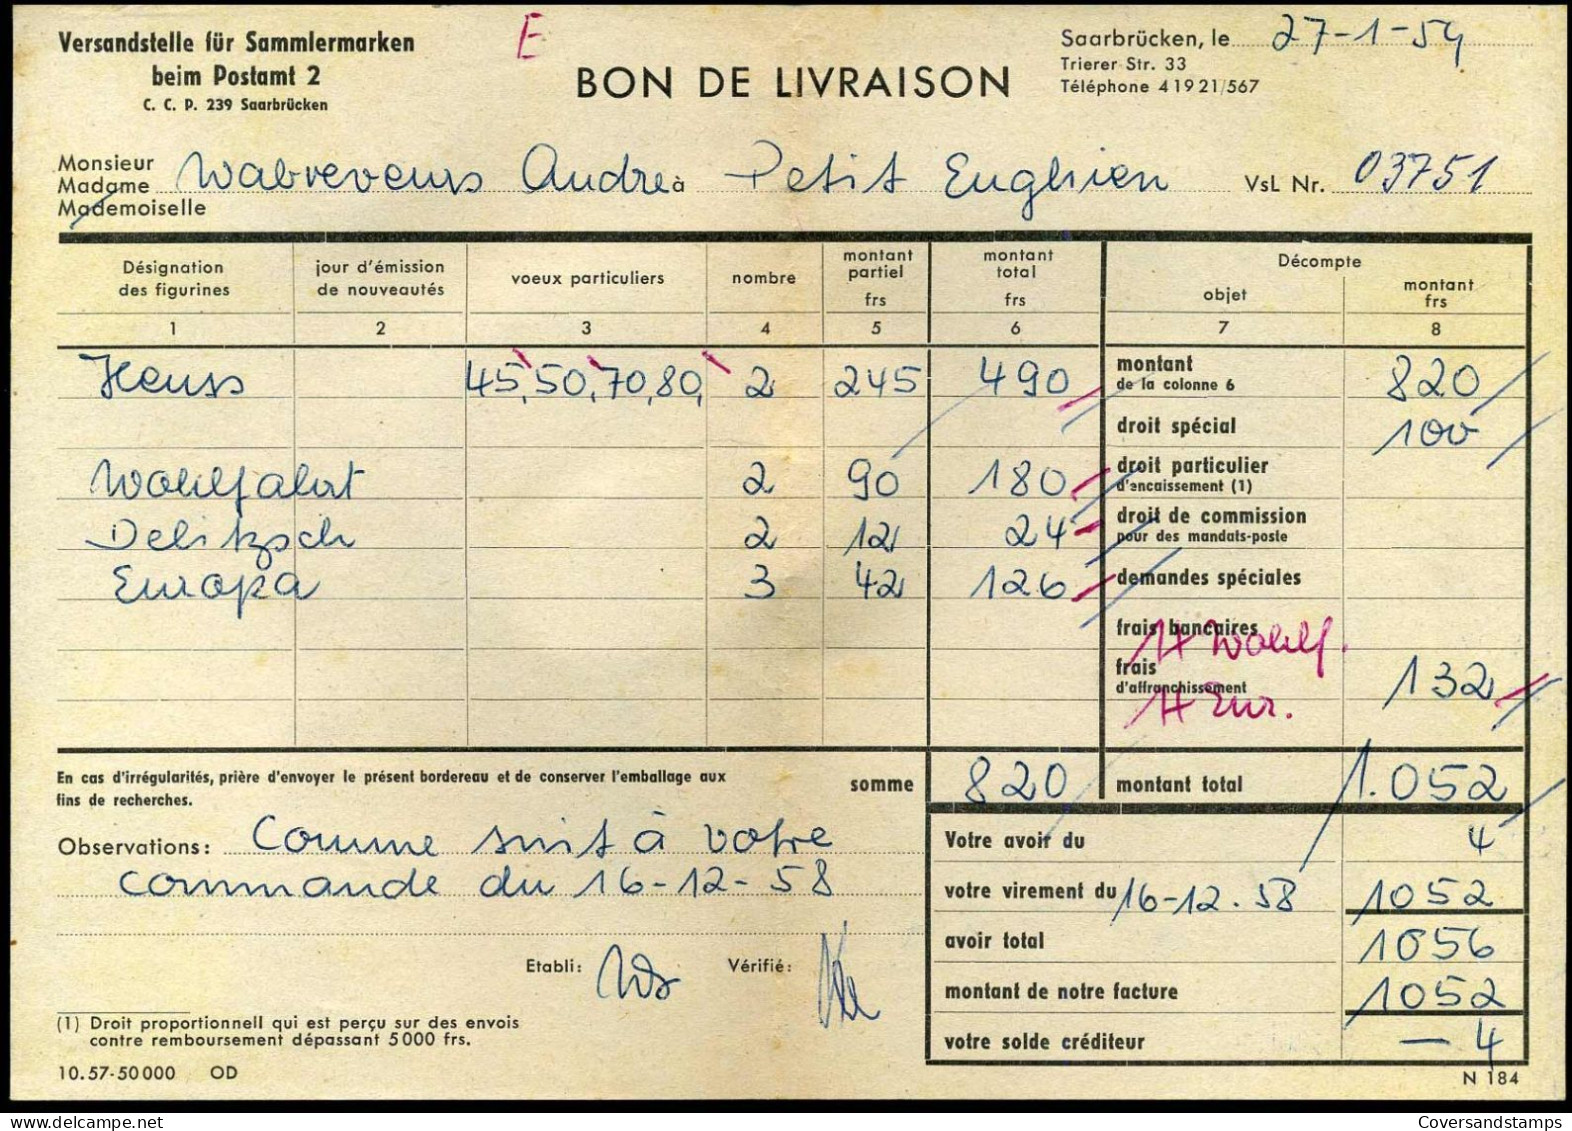 Versandstelle für Sammlermarken
beim Postamt 2
C. C. P. 239 Saarbrücken
E
BON DE LIVRAISON
Saarbrücken, le 27-1-59
Trierer Str. 33
Téléphone 4 19 21/567
Monsieur
Madame
Mademoiselle
Wabreveurs Andre à Petit Enghien
VsL Nr. 03751
Désignation des figurines
jour d'émission de nouveautés
voeux particuliers
nombre
montant partiel frs
montant total frs
Décompte
objet
montant frs
1 2 3 4 5 6 7 8
Heuss 45, 50, 70, 80, 2 245 490
montant de la colonne 6 820
droit spécial 100
Wohlfahrt 2 90 180
droit particulier d'encaissement (1)
Delitzsch 2 12 24
droit de commission pour des mandats-poste
Europa 3 42 126
demandes spéciales
frais bancaires
1+ Wohlf.
frais d'affranchissement 132
1+ Eur.
En cas d'irrégularités, prière d'envoyer le présent bordereau et de conserver l'emballage aux
fins de recherches.
somme 820
montant total 1.052
Observations: Comme suit à votre
commande du 16-12-58
Votre avoir du 4
votre virement du 16-12.58 1052
avoir total 1056
montant de notre facture 1052
votre solde créditeur — 4
Etabli:
Vérifié:
(1) Droit proportionnell qui est perçu sur des envois
contre remboursement dépassant 5000 frs.
10.57-50000 OD
N 184
Coversandstamps